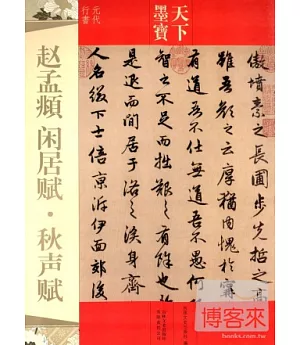 天下
墨寶
元代
行書
赵孟頫 闲居赋·秋声赋
傲墳素之長圃步先哲之高
雖吾顏之云厚猶內愧於甯
有道吾不仕無道吾不愚
智之不足而拙艱之有餘也於
是退而閒居于洛之涘身齊
人名綴下士倍京泝伊面郊後
博客來